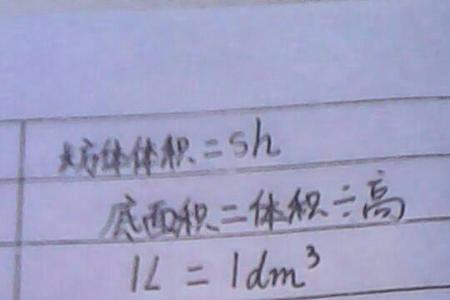 长方体体积=sh
底面积=体积÷高
1L=1dm³